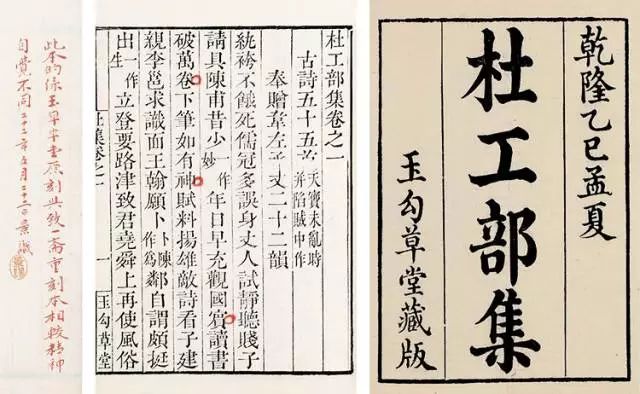 乾隆乙巳孟夏
杜工部集
玉勾草堂藏版
杜工部集卷之一
古詩五十五首 天寶未亂時并陷賊中作
奉贈韋左丞丈二十二韻
紈袴不餓死儒冠多誤身丈人試靜聽賤子
請具陳甫昔少一作妙年日早充觀國賓讀書
破萬卷下筆如有神賦料揚雄敵詩看子建
親李邕求識面王翰願卜卜陳作為鄰自謂頗挺
出一作生立登要路津致君堯舜上再使風俗
杜集卷之一 一 玉勾草堂
此本的係玉勾草堂原刻與致一斋重刻本相較精神
自覺不同二十二年五月二十二日景識